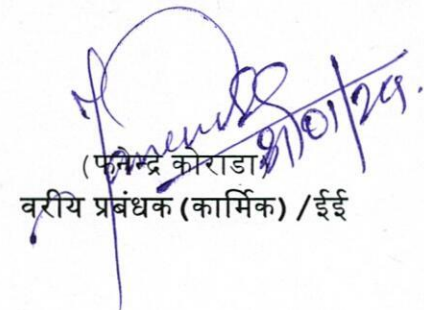 31/01/24.
(फनेन्द्र कोराडा)
वरीय प्रबंधक (कार्मिक) /ईई